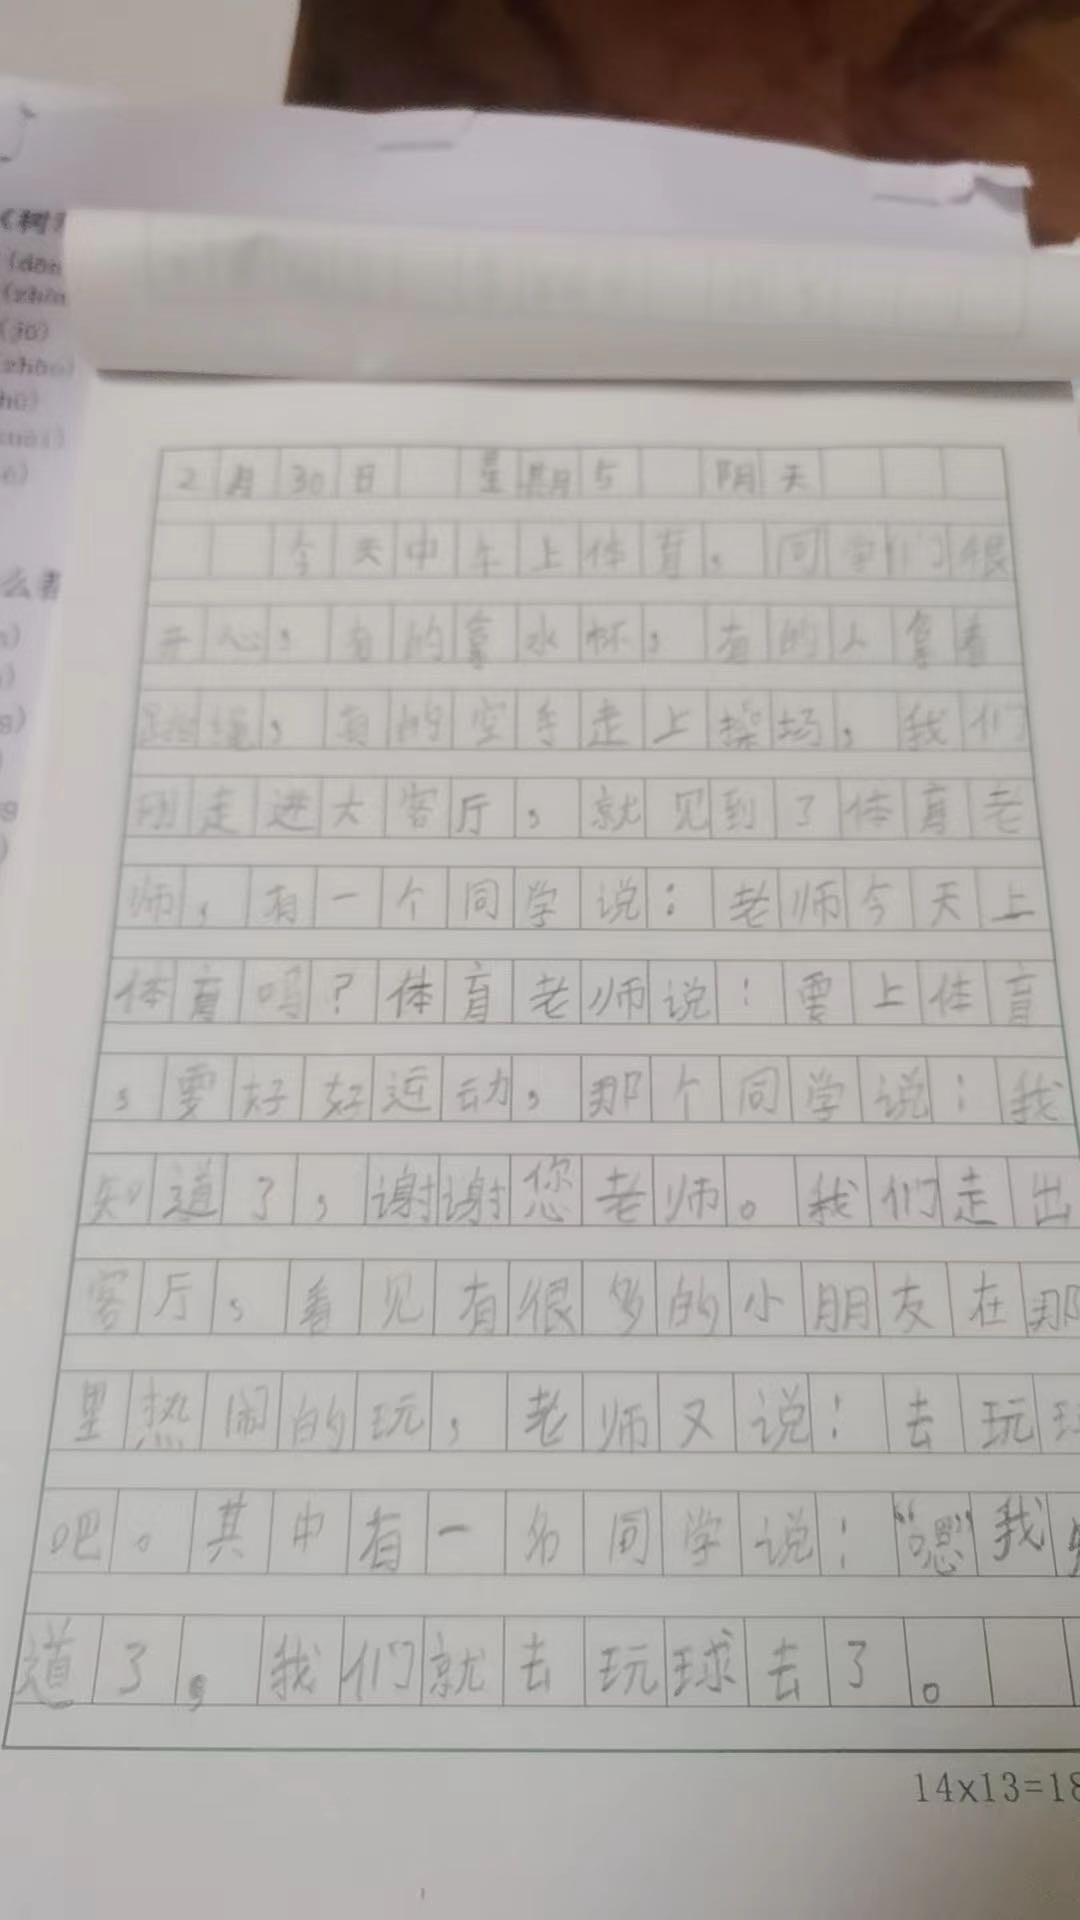 《树
(dōn
(zhōn
(jū)
(zhōo)
hū)
么看
2月30日 星期5 阴天
今天中午上体育，同学们很
开心，有的拿水杯，有的人拿着
跳绳，有的空手走上操场，我们
刚走进大客厅，就见到了体育老
师，有一个同学说：老师今天上
体育吗？体育老师说：要上体育
，要好好运动，那个同学说：我
知道了，谢谢您老师。我们走出
客厅，看见有很多的小朋友在那
里热闹的玩，老师又说：去玩球
吧。其中有一名同学说：“嗯”我知
道了，我们就去玩球去了。
14x13=18